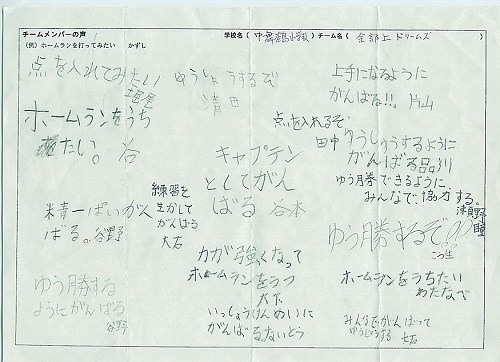 チームメンバーの声
(例)ホームランを打ってみたい かずし
学校名(中舞鶴小学校)チーム名(余部上ドリームズ)
点を入れてみたい
ゆうしょうするぞ
清田
上手になるように
がんばる!!。片山
ホームランをうち
たい。谷
点を入れるぞ
田中
ゆうしょうするように
がんばる品川
キャプテン
としてがん
ばる 谷本
ゆう勝できるように、
みんなで、協力する。
津良野
瞳
練習を
生かして
がんばる
大石
精一ぱいがん
ばる。谷野
ゆう勝するぞ
力が強くなって
ホームランをうつ
大下
ホームランをうちたい
わたなべ
ゆう勝する
ようにがんばる
谷野
いっしょうけんめいに
がんばる。ないとう
みんなでがんばって
ゆうしょうする 大石